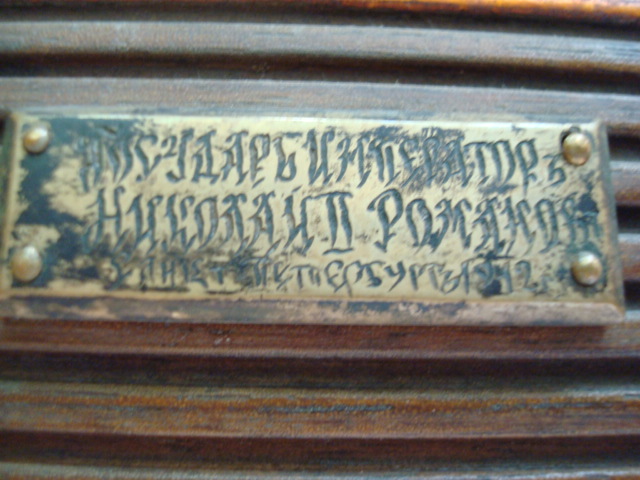 ГОСУДАРЬ ИМПЕРАТОРЪ
НИКОЛАЙ II РОМАНОВ
САНКТ ПЕТЕРБУРГЪ